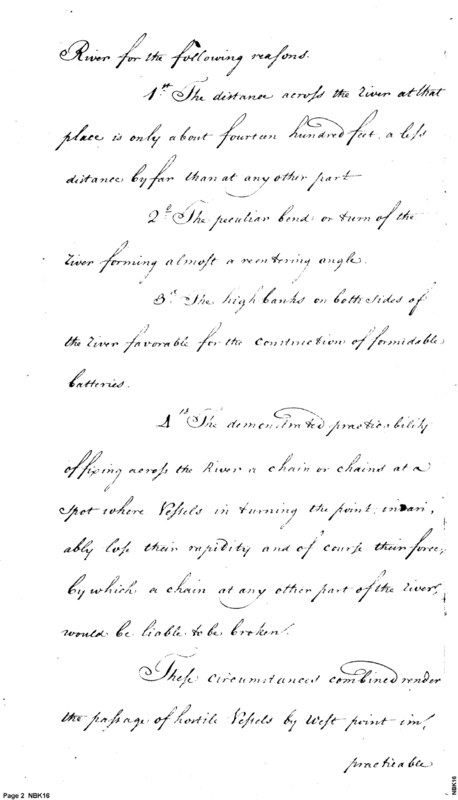 River for the following reasons.
1st The distance across the River at that
place is only about fourteen hundred feet, a less
distance by far than at any other part
2d The peculiar bend or turn of the
River forming almost a reentering angle.
3d The high banks on both sides of
the River favorable for the construction of formidable
batteries.
4th The demonstrated practicability
of fixing across the River a chain or chains at a
spot where Vessels in turning the point, invari,
ably lose their rapidity and of course their force,
by which a chain at any other part of the River,
would be liable to be broken.
These circumstances combined render
the passage of hostile Vessels by West point im,
practicable
Page 2 NBK16
NBK16